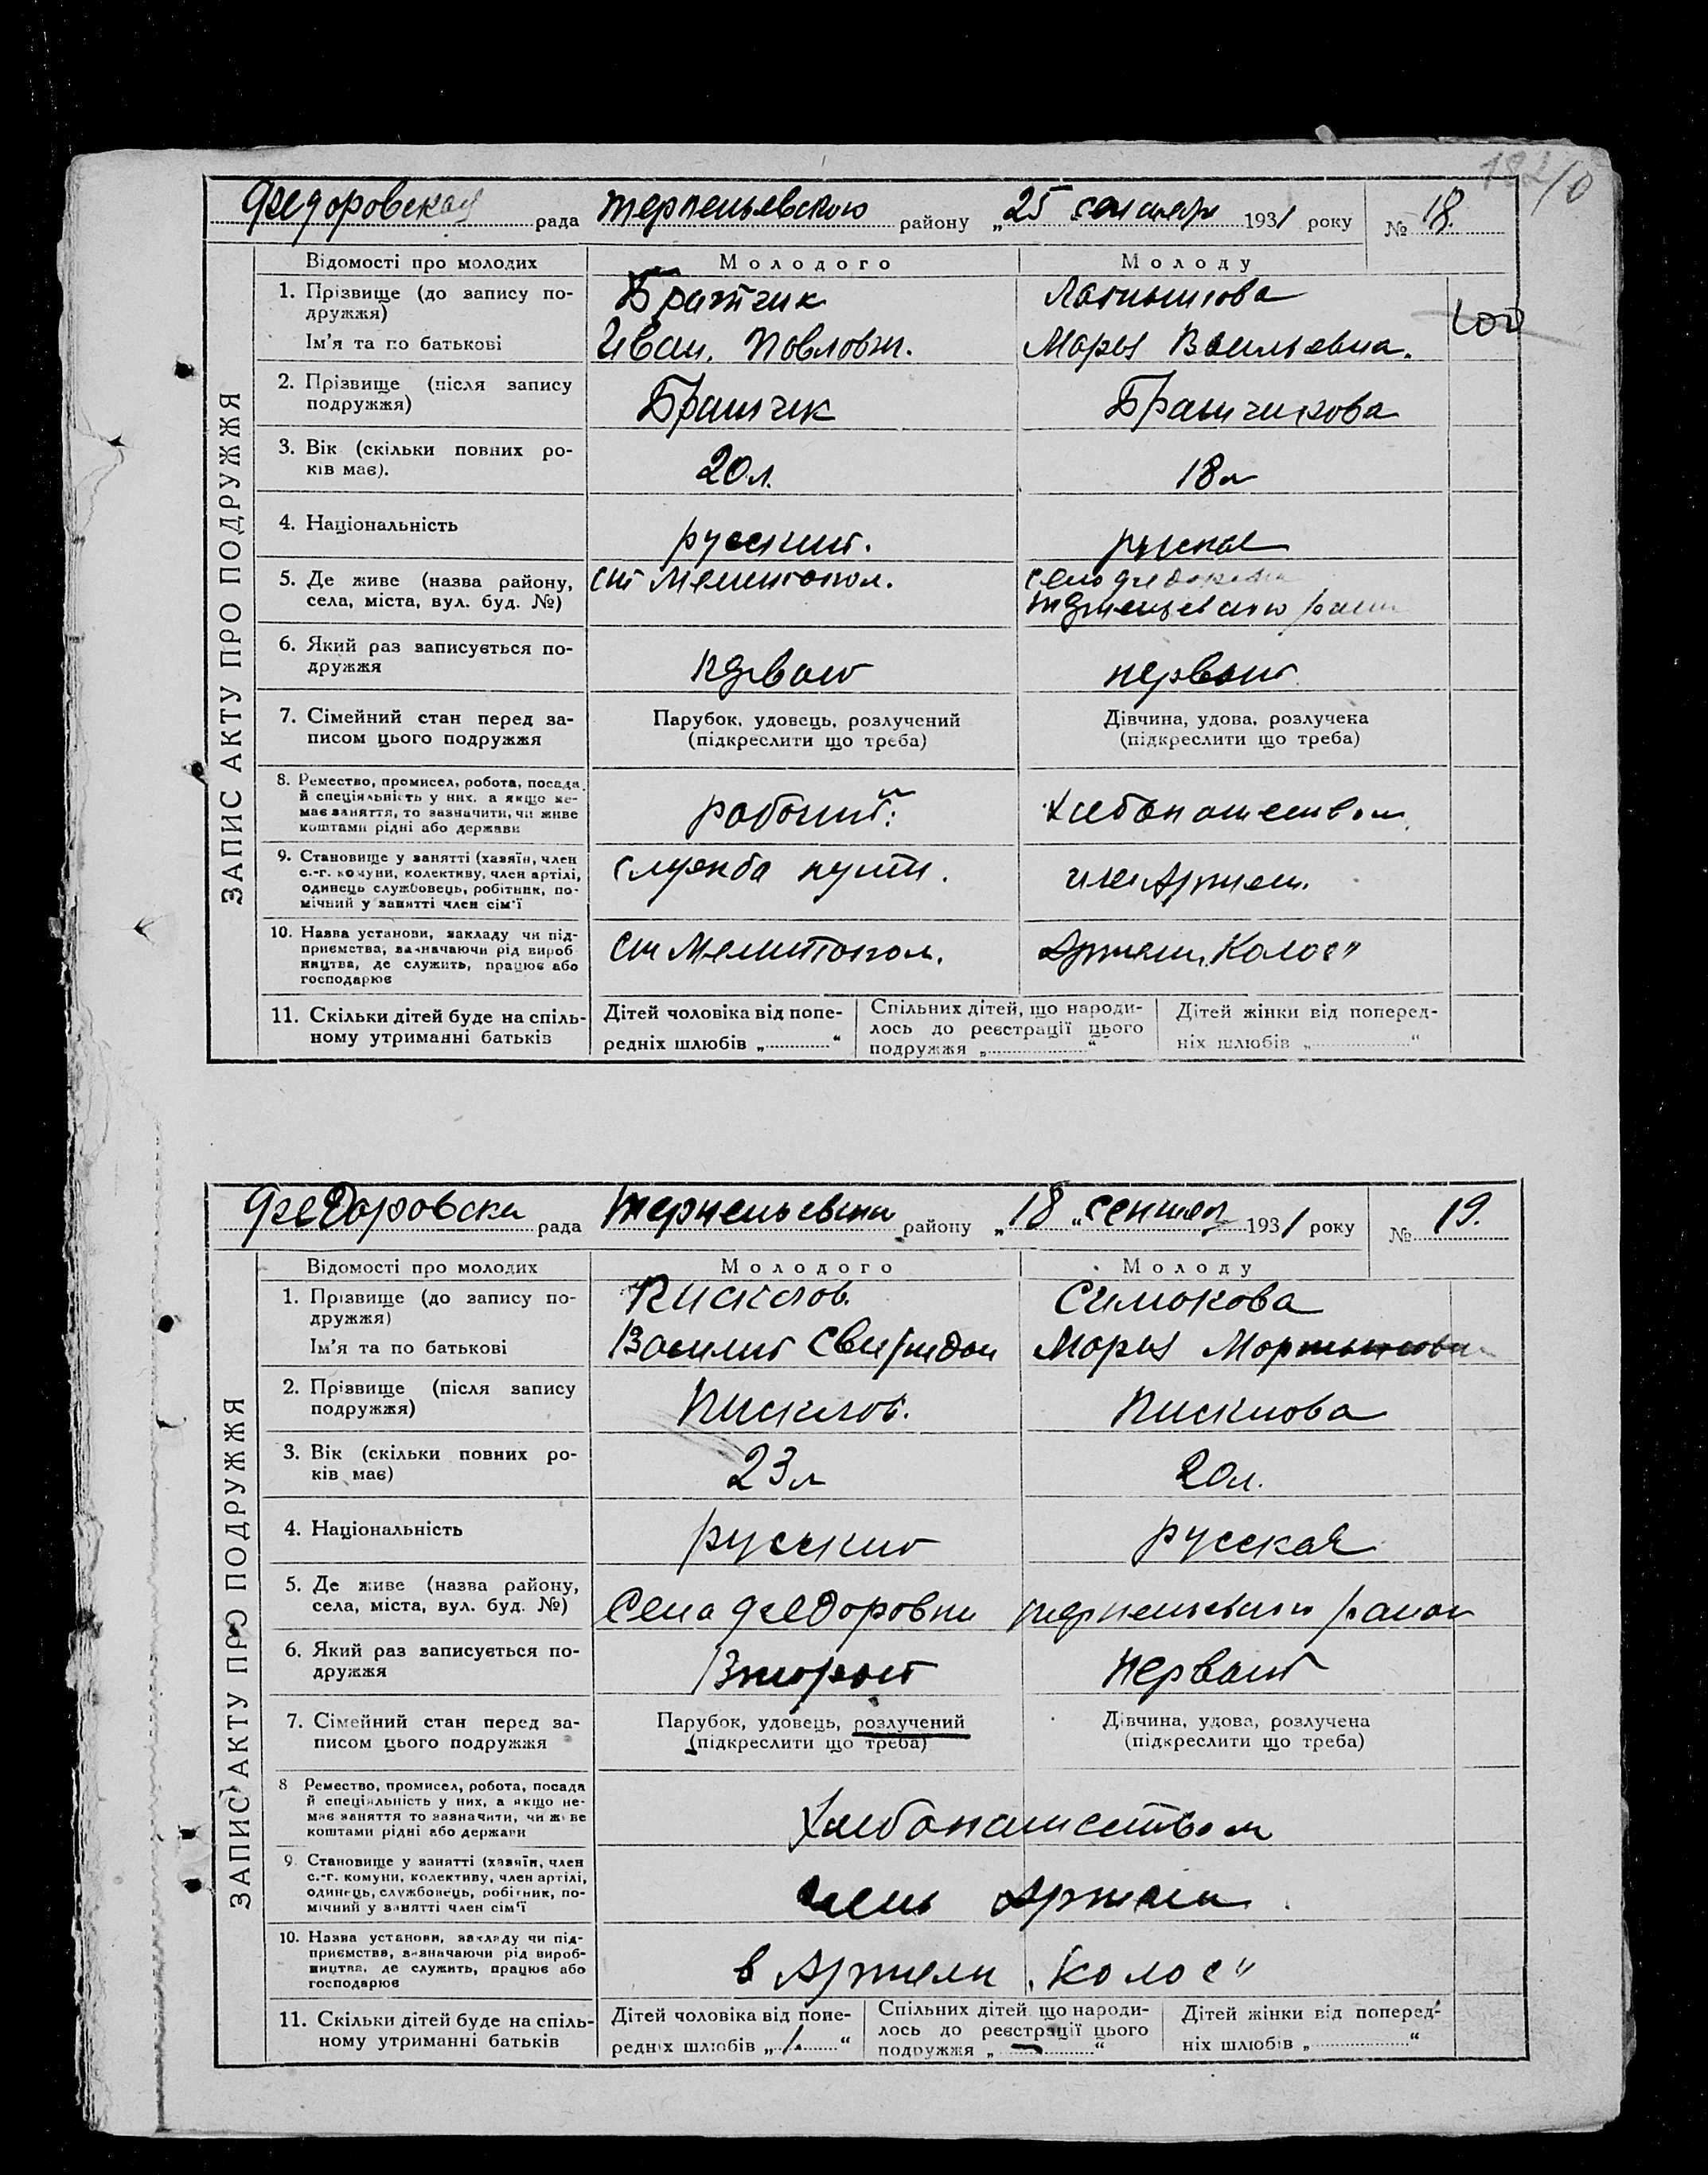 Федоровская рада Терпеньевского району „25 сентября 1931 року № 18.
Відомості про молодих Молодого Молоду
1. Прізвище (до запису по-
дружжя) Братчик
Ім'я та по батькові Иван. Павлович. Марья Васильевна.
2. Прізвище (після запису
подружжя) Братчик Братчикова
3. Вік (скільки повних ро-
ків має). 20 л. 18 л
4. Національність русский. русская
5. Де живе (назва району,
села, міста, вул. буд. №) ст Мелитопол. село Федоровка
Терпеньевского район
6. Який раз записується по-
дружжя первый первый
7. Сімейний стан перед за-
писом цього подружжя Парубок, удовець, розлучений
(підкреслити що треба) Дівчина, удова, розлучена
(підкреслити що треба)
8. Ремество, промисел, робота, посада
й спеціяльність у них, а якщо не-
має заняття, то зазначити, чи живе
коштами рідні або держави рабочий. хлебопашеством
9. Становище у занятті (хазяїн, член
с.-г. комуни, колективу, член артілі,
одинець службовець, робітник, по-
мічний у занятті член сім'ї служба пути. член Артели.
10. Назва установи, закладу чи під-
приємства, зазначаючи рід вироб
ництва, де служить, працює або
господарює ст Мелитопол. Артели „Колос"
11. Скільки дітей буде на спіль-
ному утриманні батьків Дітей чоловіка від попе-
редніх шлюбів „ “ Спільних дітей, що народи-
лось до реєстрації цього
подружжя „ “ Дітей жінки від поперед-
ніх шлюбів „ “
ЗАПИС АКТУ ПРО ПОДРУЖЖЯ
Федоровска рада Терпеньевски району „18 „ сентяб 1931 року № 19.
Відомості про молодих Молодого Молоду
1. Прізвище (до запису по-
дружжя) Симокова
Ім'я та по батькові Василий Свиридон Марья Мартыновн
2. Прізвище (після запису
подружжя)
3. Вік (скільки повних ро-
ків має) 23 л 20 л.
4. Національність русский русская
5. Де живе (назва району,
села, міста, вул. буд. №) Села Федоровки Терпеньевского район
6. Який раз записується по-
дружжя Второй первый
7. Сімейний стан перед за-
писом цього подружжя Парубок, удовець, розлучений
(підкреслити що треба) Дівчина, удова, розлучена
(підкреслити що треба)
8 Ремество, промисел, робота, посада
й спеціяльність у них, а якщо не-
має заняття то зазначити, чи живе
коштами рідні або держави Хлебопашеством
9. Становище у занятті (хазяїн, член
с.-г. комуни, колективу, член артілі,
одинець, службовець, робітник, по-
мічний у занятті член сім'ї член Артели
10. Назва установи, закладу чи під-
приємства, зазначаючи рід вироб-
ництва, де служить, працює або
господарює в Артели „Колос"
11. Скільки дітей буде на спіль-
ному утриманні батьків Дітей чоловіка від попе-
редніх шлюбів „ 1. “ Спільних дітей, що народи-
лось до реєстрації цього
подружжя „ — “ Дітей жінки від поперед-
ніх шлюбів „ “
ЗАПИС АКТУ ПРО ПОДРУЖЖЯ